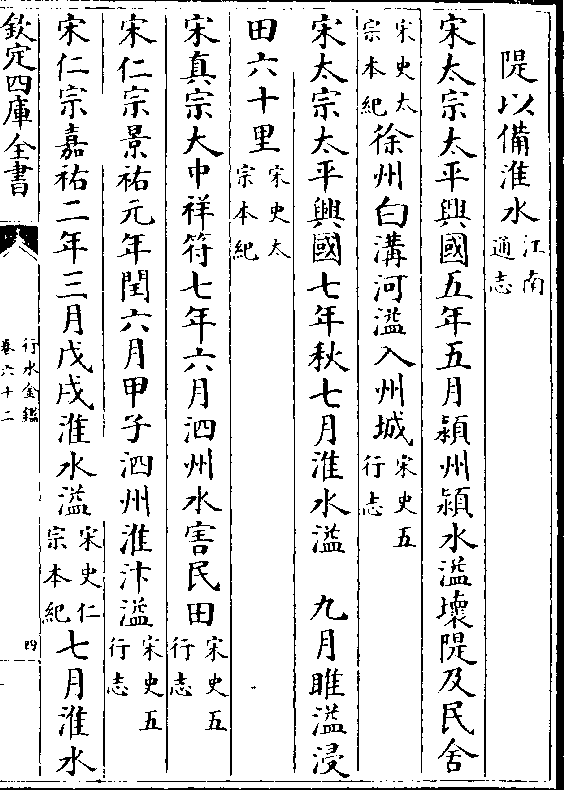 隄以備淮水江南通志
宋太宗太平興國五年五月潁州潁水溢壞隄及民舍
宋史太宗本紀徐州白溝河溢入州城宋史五行志
宋太宗太平興國七年秋七月淮水溢　九月睢溢浸
田六十里宋史太宗本紀
宋真宗大中祥符七年六月泗州水害民田宋史五行志
宋仁宗景祐元年閏六月甲子泗州淮汴溢宋史五行志
宋仁宗嘉祐二年三月戊戌淮水溢宋史仁宗本紀七月淮水
欽定四庫全書
行水金鑑
卷六十二
四